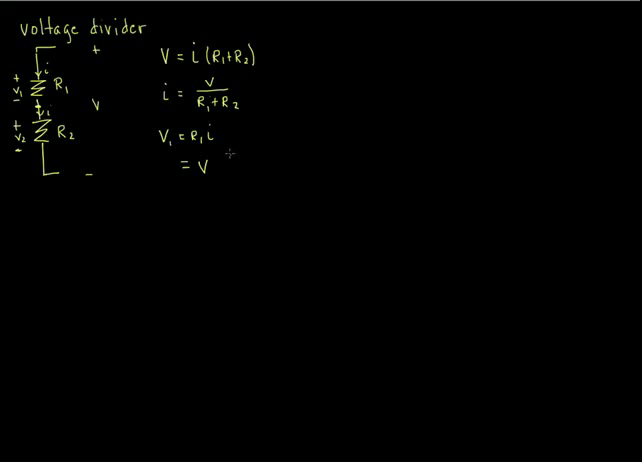 voltage divider
+
i
+
v₁
-
R₁
i
v
+
v₂
-
R₂
-
V = i (R₁+R₂)
i = v / (R₁+R₂)
V₁ = R₁ i
= V